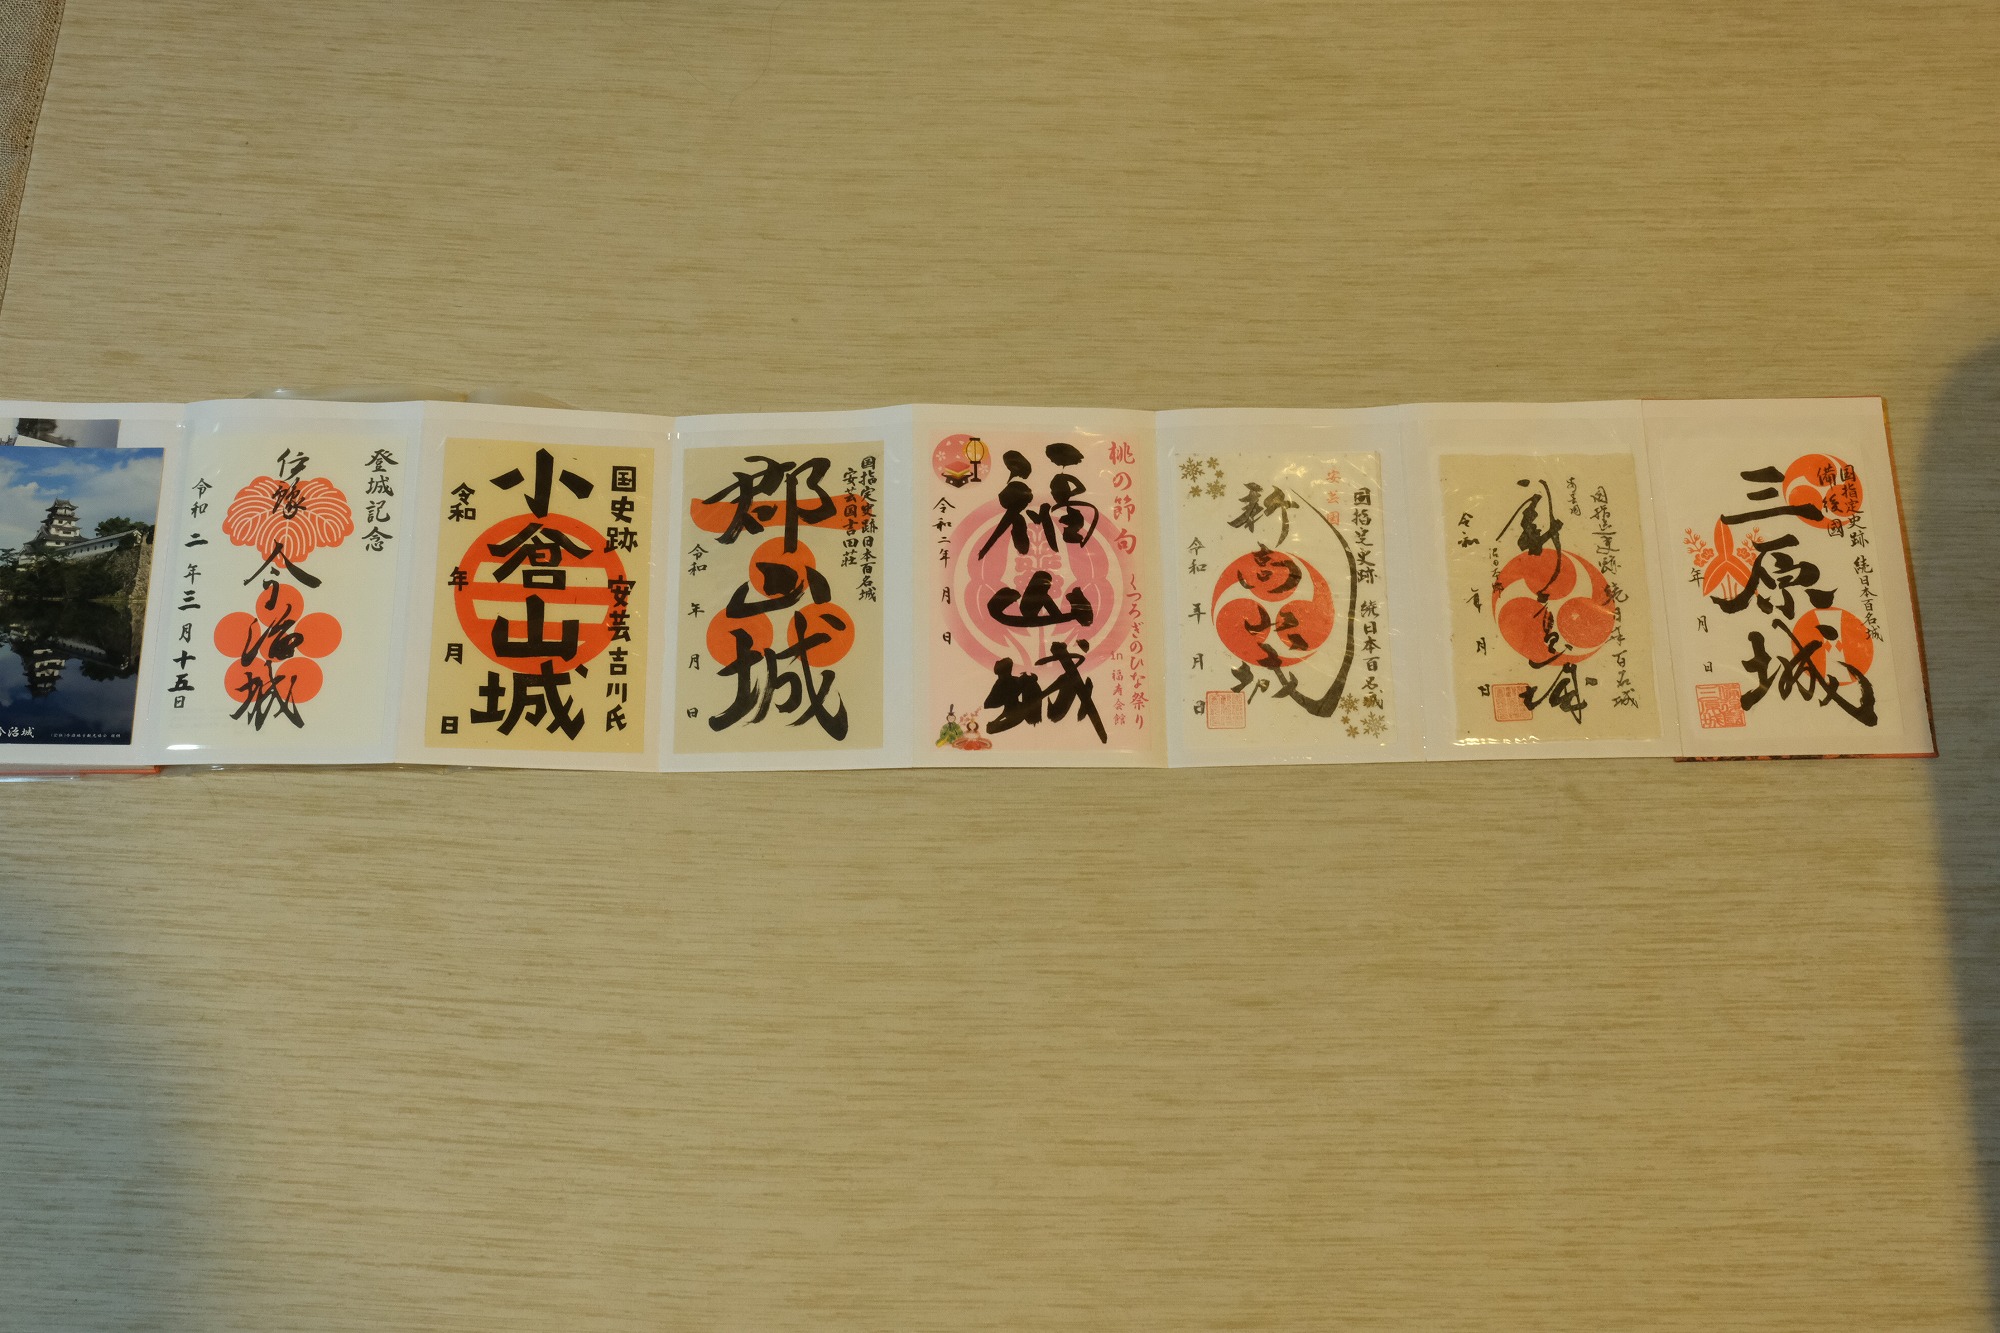 今治城
登城記念
伊豫
今治城
令和二年三月十五日
国史跡 安芸吉川氏
小倉山城
令和 年 月 日
国指定史跡日本百名城
安芸国吉田荘
郡山城
令和 年 月 日
桃の節句
くつろぎのひな祭り
in 福寿会館
福山城
令和二年 月 日
国指定史跡 続日本百名城
安芸国
新高山城
令和 年 月 日
国指定史跡 続日本百名城
安芸国
新高山城
令和 年 月 日
国指定史跡 続日本百名城
備後國
三原城
年 月 日